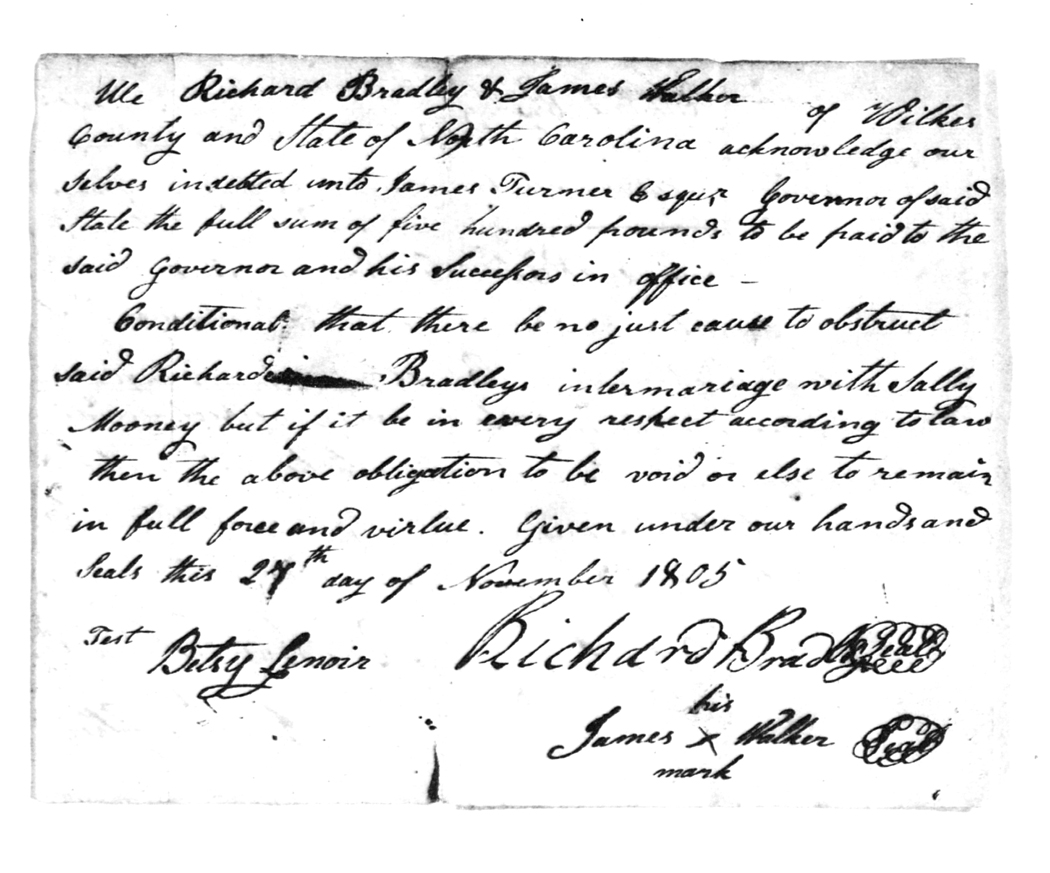 We Richard Bradley & James Walker of Wilkes
County and State of North Carolina acknowledge our
selves indebted unto James Turner Esqur Governor of said
State the full sum of five hundred pounds to be paid to the
said Governor and his Successors in office –
Conditional that there be no just cause to obstruct
said Richard Bradleys intermariage with Sally
Mooney but if it be in every respect according to law
then the above obligation to be void or else to remain
in full force and virtue. Given under our hands and
Seals this 27th day of November 1805
Test Betsy Lenoir Richard Bradley Seal
his
James x Walker Seal
mark